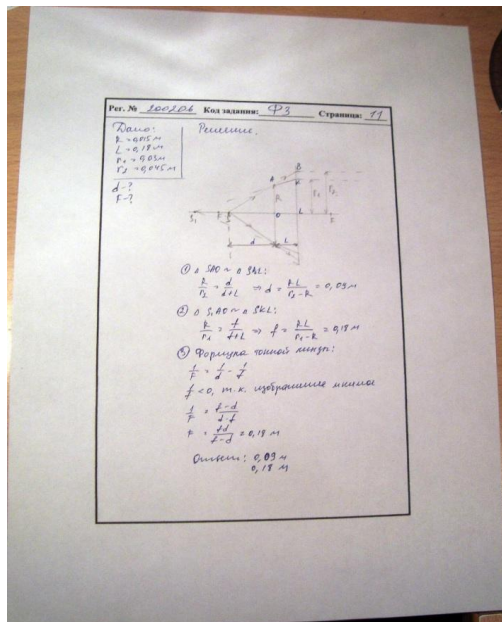 Рег. № 200206 Код задания: Ф3 Страница: 11
Дано: Решение.
R = 0,015 м
L = 0,18 м
r₁ = 0,03 м
r₂ = 0,045 м
d - ?
F - ?
B
A K
R r₁ r₂
S₁ F S O L F
d L
① △ SAO ~ △ SBL:
R/r₂ = d/(d+L) ⇒ d = RL/(r₂-R) = 0,09 м
② △ S₁AO ~ △ SKL:
R/r₁ = f/(f+L) ⇒ f = RL/(r₁-R) = 0,18 м
③ Формула тонкой линзы:
1/F = 1/d - 1/f
f < 0, т.к. изображение мнимое
1/F = (f-d)/(d·f)
F = fd/(f-d) = 0,18 м
Ответ: 0,09 м
0,18 м